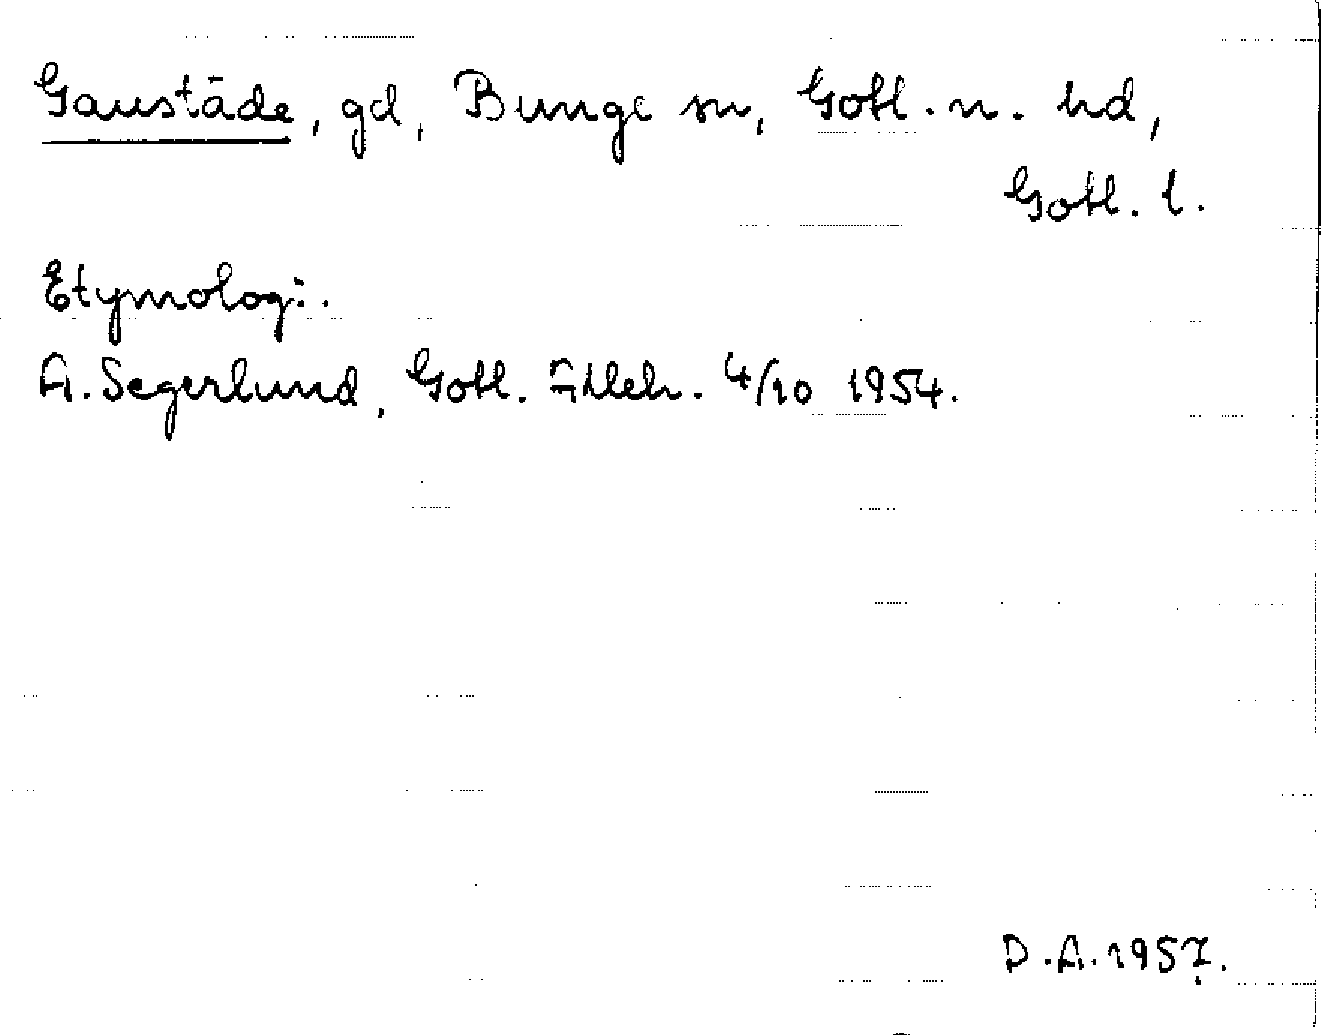 Gaustäde, gd, Bunge sn, Gotl. n. hd,
Gotl. l.
Etymologi.
A. Segerlund, Gotl. Alleh. 4/10 1954.
D.A. 1957.